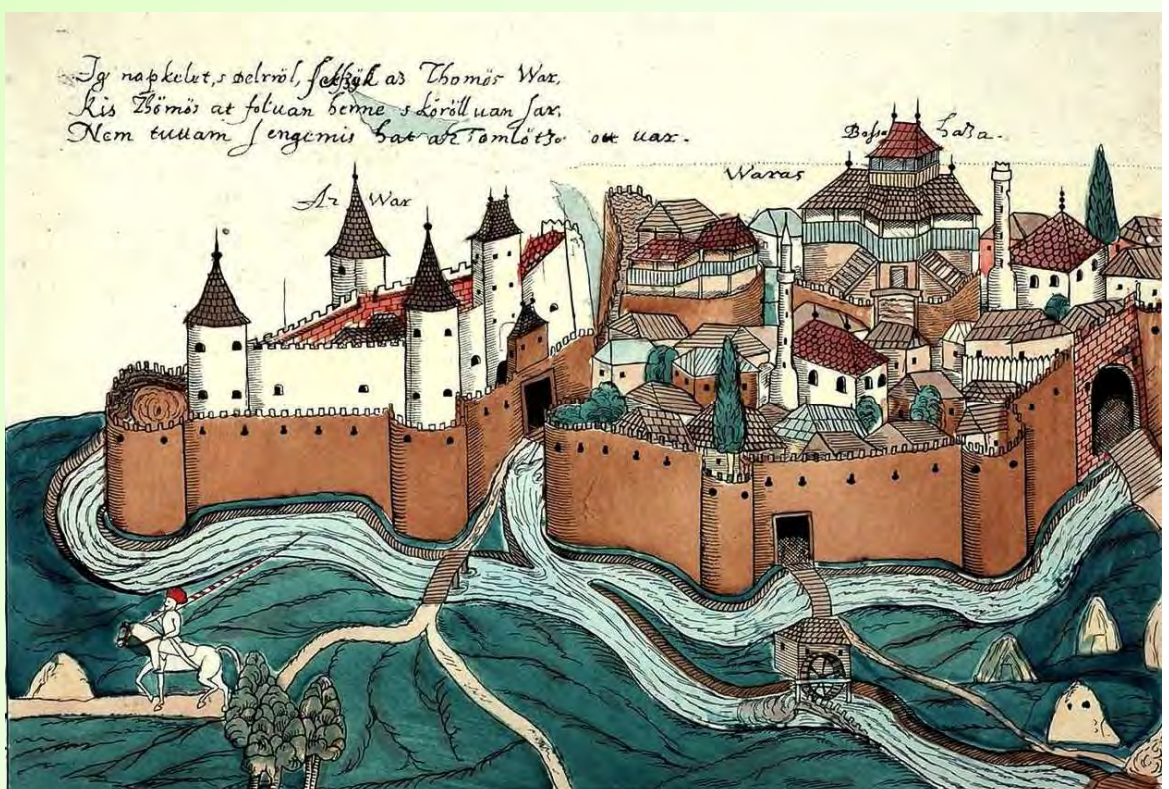 Ig napkelet, s delrröl, fekzyk as Thömös War,
Kis Thömös at foluan benne s körölluan sar,
Nem tuttam s engemis hat az Tomlötzo ott uar.
Az War
Waras
Bossa haza.